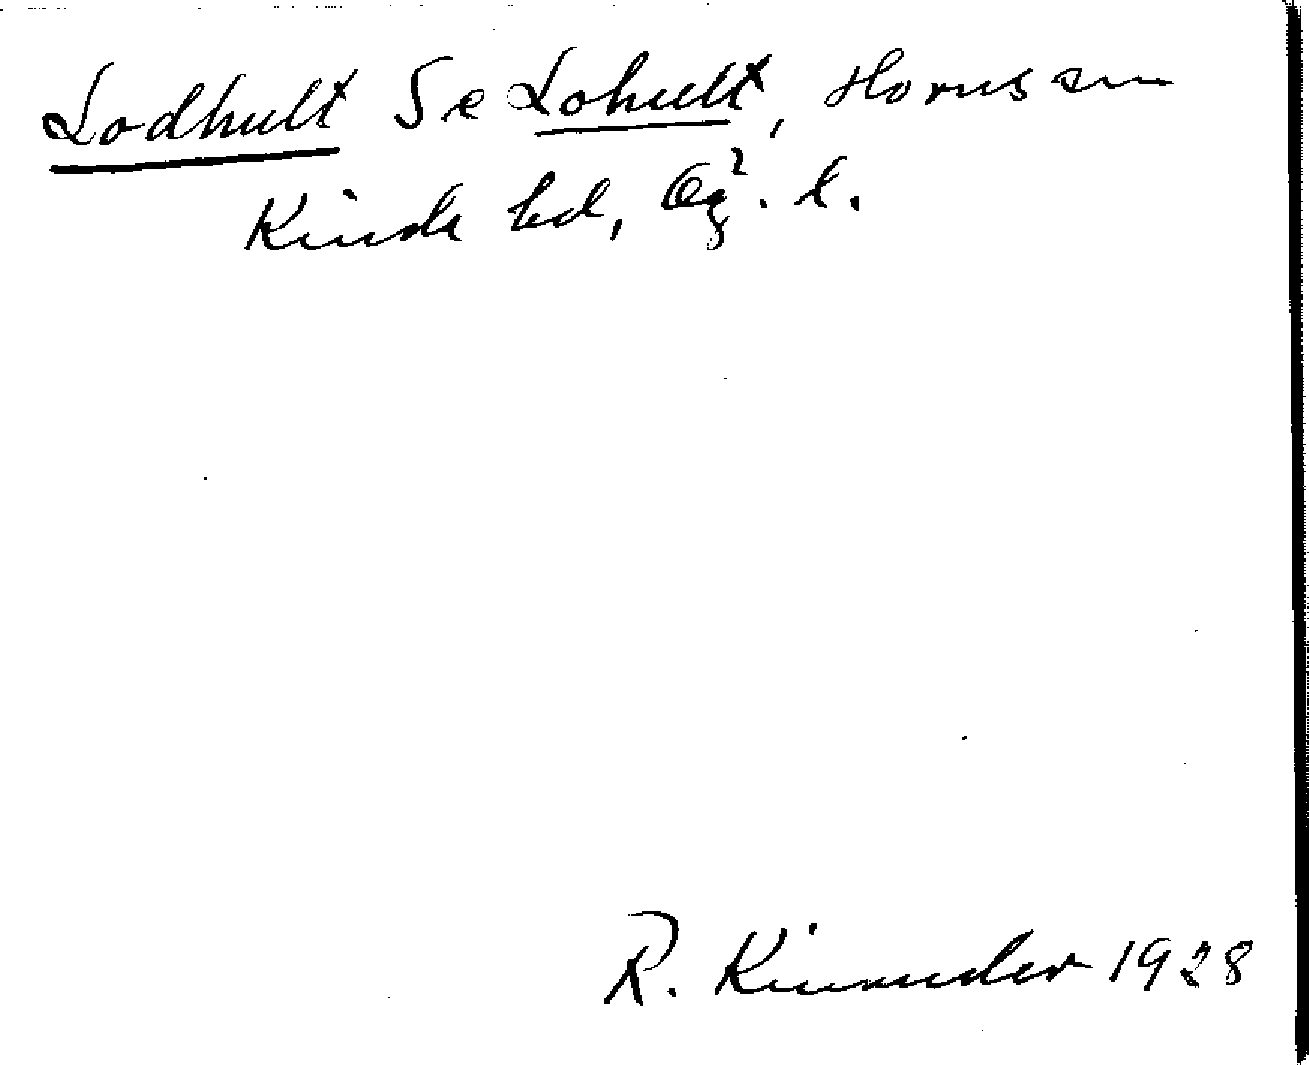 Lodhult Se Lohult, Horns sn
Kinda hd, Ög. l.
R. Kinander 1928